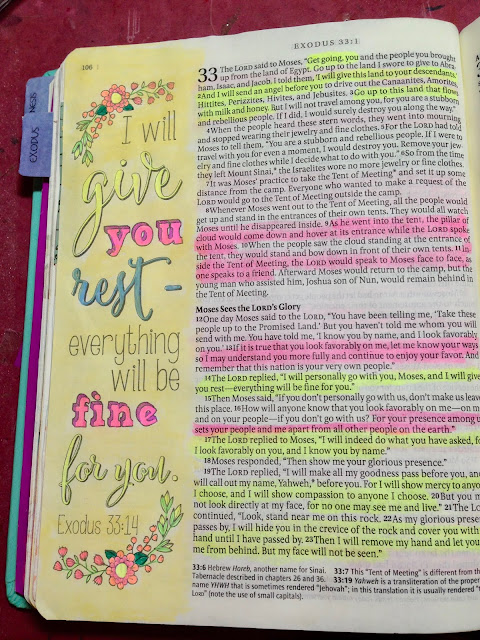 EXODUS 33:1
106
EXODUS
I will
give
you
rest -
everything
will be
fine
for you.
Exodus 33:14
33 The LORD said to Moses, "Get going, you and the people you brought
up from the land of Egypt. Go up to the land I swore to give to Abra-
ham, Isaac, and Jacob. I told them, 'I will give this land to your descendants.'
2And I will send an angel before you to drive out the Canaanites, Amorites,
Hittites, Perizzites, Hivites, and Jebusites. 3Go up to this land that flows
with milk and honey. But I will not travel among you, for you are a stubborn
and rebellious people. If I did, I would surely destroy you along the way."
4When the people heard these stern words, they went into mourning
and stopped wearing their jewelry and fine clothes. 5For the LORD had told
Moses to tell them, "You are a stubborn and rebellious people. If I were to
travel with you for even a moment, I would destroy you. Remove your jew-
elry and fine clothes while I decide what to do with you." 6So from the time
they left Mount Sinai,* the Israelites wore no more jewelry or fine clothes.
7It was Moses' practice to take the Tent of Meeting* and set it up some
distance from the camp. Everyone who wanted to make a request of the
LORD would go to the Tent of Meeting outside the camp.
8Whenever Moses went out to the Tent of Meeting, all the people would
get up and stand in the entrances of their own tents. They would all watch
Moses until he disappeared inside. 9As he went into the tent, the pillar of
cloud would come down and hover at its entrance while the LORD spoke
with Moses. 10When the people saw the cloud standing at the entrance of
the tent, they would stand and bow down in front of their own tents. 11In-
side the Tent of Meeting, the LORD would speak to Moses face to face, as
one speaks to a friend. Afterward Moses would return to the camp, but the
young man who assisted him, Joshua son of Nun, would remain behind in
the Tent of Meeting.
Moses Sees the LORD's Glory
12One day Moses said to the LORD, "You have been telling me, 'Take these
people up to the Promised Land.' But you haven't told me whom you will
send with me. You have told me, 'I know you by name, and I look favorably
on you.' 13If it is true that you look favorably on me, let me know your ways
so I may understand you more fully and continue to enjoy your favor. And
remember that this nation is your very own people."
14The LORD replied, "I will personally go with you, Moses, and I will give
you rest—everything will be fine for you."
15Then Moses said, "If you don't personally go with us, don't make us leave
this place. 16How will anyone know that you look favorably on me—on me
and on your people—if you don't go with us? For your presence among us
sets your people and me apart from all other people on the earth."
17The LORD replied to Moses, "I will indeed do what you have asked, for
I look favorably on you, and I know you by name."
18Moses responded, "Then show me your glorious presence."
19The LORD replied, "I will make all my goodness pass before you, and
will call out my name, Yahweh,* before you. For I will show mercy to any
I choose, and I will show compassion to anyone I choose. 20But you m
not look directly at my face, for no one may see me and live." 21The Lo
continued, "Look, stand near me on this rock. 22As my glorious presen
passes by, I will hide you in the crevice of the rock and cover you with
hand until I have passed by. 23Then I will remove my hand and let you
me from behind. But my face will not be seen."
33:6 Hebrew Horeb, another name for Sinai. 33:7 This "Tent of Meeting" is different from the
Tabernacle described in chapters 26 and 36. 33:19 Yahweh is a transliteration of the proper
name YHWH that is sometimes rendered "Jehovah"; in this translation it is usually rendered "t
LORD" (note the use of small capitals).